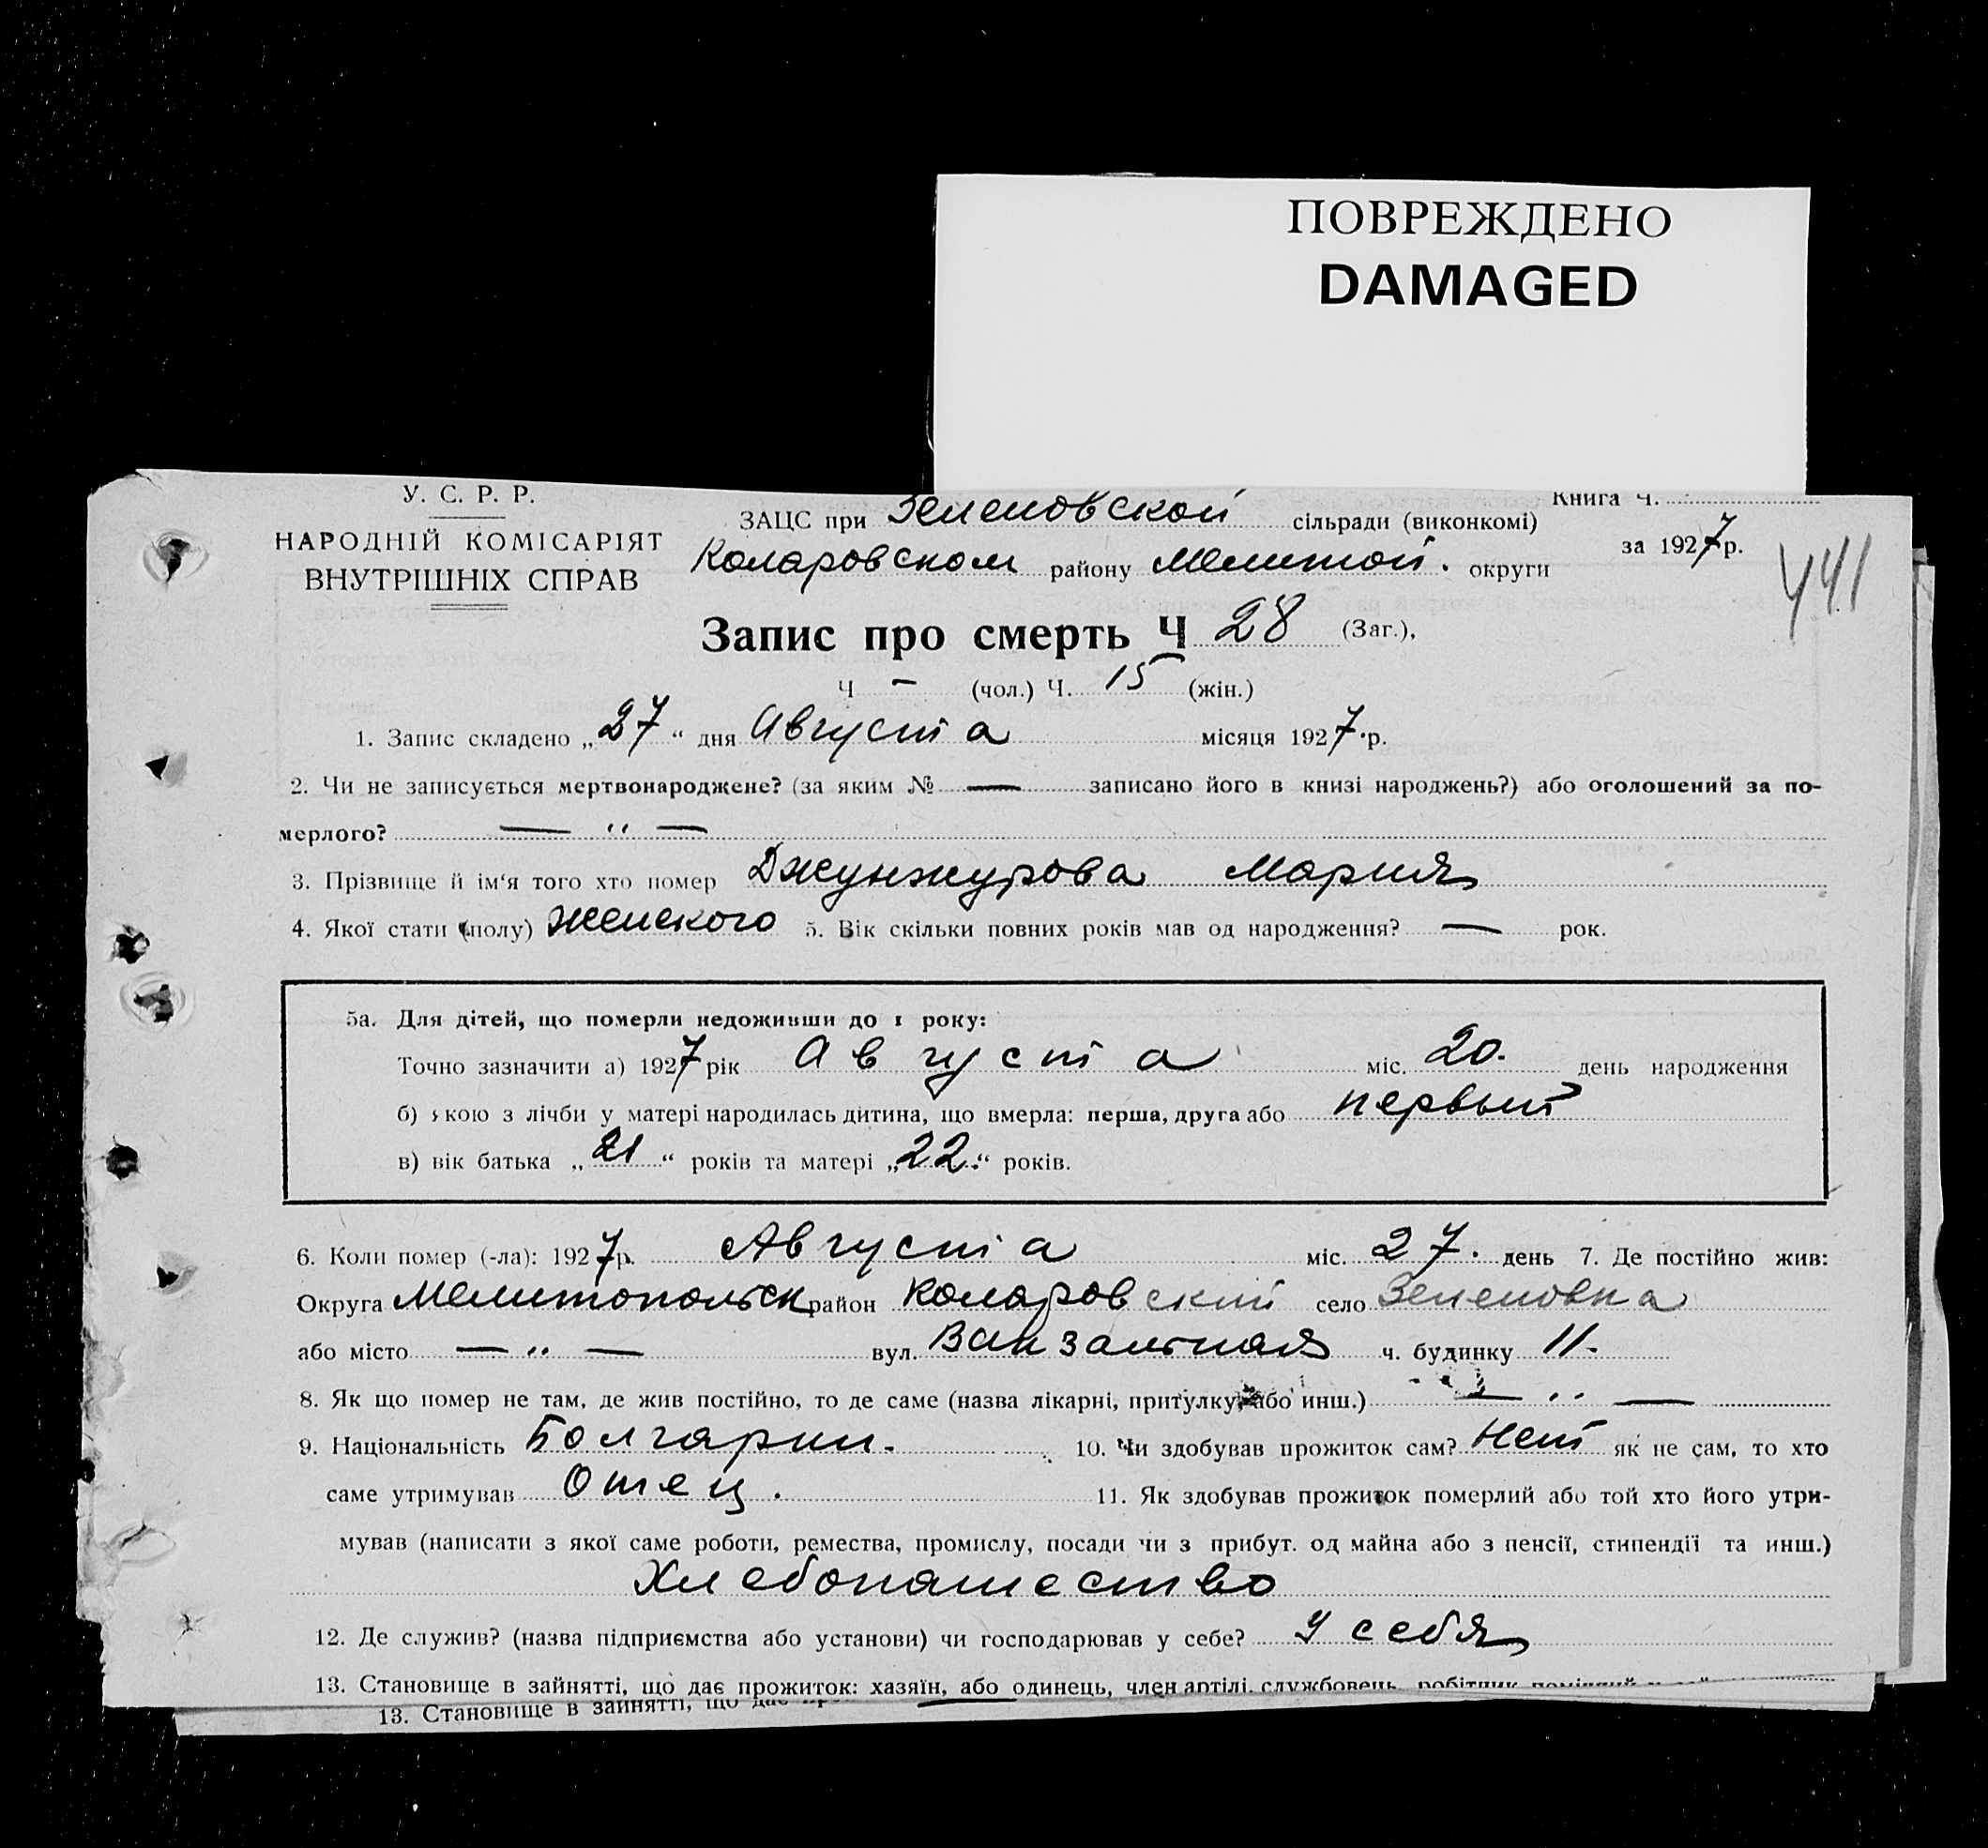 ПОВРЕЖДЕНО
DAMAGED
У. С. Р. Р.
НАРОДНІЙ КОМІСАРІЯТ
ВНУТРІШНІХ СПРАВ
Книга Ч.
ЗАЦС при Зеленовской сільради (виконкомі)
за 1927 р.
Коларовском району Мелитоп. округи
441
Запис про смерть Ч 28 (Заг.),
Ч — (чол.) Ч. 15 (жін.)
1. Запис складено „27“ дня Августа місяця 1927 р.
2. Чи не записується мертвонароджене? (за яким № — записано його в книзі народжень?) або оголошений за по-
мерлого? — „ —
3. Прізвище й ім‘я того хто помер Джунжурова Мария
4. Якої стати (полу) Женского 5. Вік скільки повних років мав од народження? — рок.
5а. Для дітей, що померли недоживши до 1 року:
Точно зазначити а) 1927 рік Августа міс. 20. день народження
б) якою з лічби у матері народилась дитина, що вмерла: перша, друга або первый
в) вік батька „21“ років та матері „22.“ років.
6. Коли помер (-ла): 1927 р. Августа міс. 27. день 7. Де постійно жив:
Округа Мелитопольск район Коларовский село Зеленовка
або місто — „ — вул. Вакзальная ч. будинку 11.
8. Як що помер не там, де жив постійно, то де саме (назва лікарні, притулку або инш.) — „ —
9. Національність Болгарин. 10. Чи здобував прожиток сам? Нет як не сам, то хто
саме утримував Отец. 11. Як здобував прожиток померлий або той хто його утри-
мував (написати з якої саме роботи, ремества, промислу, посади чи з прибут. од майна або з пенсії, стипендії та инш.)
Хлебопашество
12. Де служив? (назва підприємства або установи) чи господарював у себе? У себя
13. Становище в зайнятті, що дає прожиток: хазяїн, або одинець, член артілі, службовець, робітник
13. Становище в зайнятті, що дає